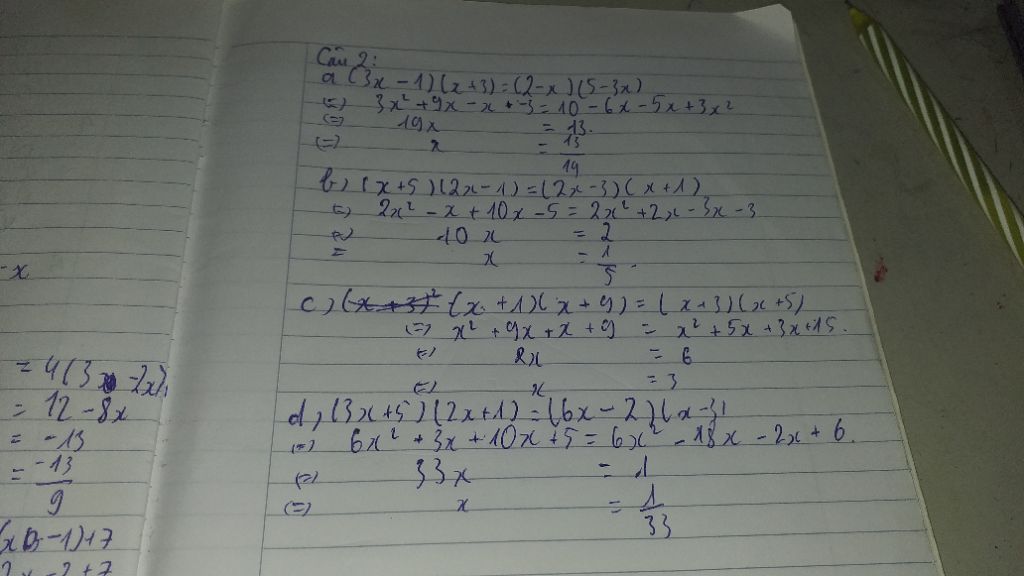 -x
= 4(3x - 2x)
= 12 - 8x
= -13
= -13/9
-1)+7
2x-2+7
Câu 2:
a (3x - 1)(x+3)=(2-x)(5-3x)
(=) 3x² + 9x - x + -3 = 10 - 6x - 5x + 3x²
(=) 19x = 13.
(=) x = 13/19
b) (x+5)(2x-1)=(2x-3)(x+1)
(=) 2x² - x + 10x - 5 = 2x² + 2x - 3x - 3
(=) 10 x = 2
= x = 1/5.
c) (x+3)² (x + 1)(x + 9) = (x+3)(x+5)
(=) x² + 9x + x + 9 = x² + 5x + 3x + 15.
(=) 2x = 6
(=) x = 3
d) (3x+5)(2x+1)=(6x-2)(x-3)
(=) 6x² + 3x + 10x + 5 = 6x² - 18x - 2x + 6.
(=) 33x = 1
(=) x = 1/33